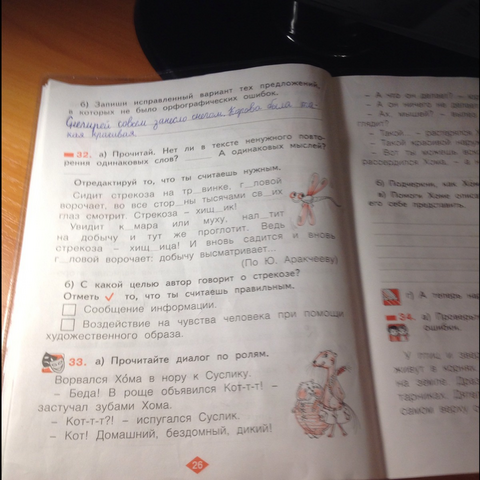 б) Запиши исправленный вариант тех предложений,
в которых не было орфографических ошибок.
совсем занесло снегом
32. а) Прочитай. Нет ли в тексте ненужного повто-
рения одинаковых слов? А одинаковых мыслей?
Отредактируй то, что ты считаешь нужным.
Сидит стрекоза на тр..винке, г..ловой
ворочает, во все стор..ны тысячами св..их
глаз смотрит. Стрекоза – хищ..ик!
Увидит к..мара или муху, нал..тит
на добычу и тут же проглотит. Ведь
стрекоза – хищ..ица! И вновь садится и вновь
г..ловой ворочает: добычу высматривает...
(По Ю. Аракчееву)
б) С какой целью автор говорит о стрекозе?
Отметь ✓ то, что ты считаешь правильным.
Сообщение информации.
Воздействие на чувства человека при помощи
художественного образа.
33. а) Прочитайте диалог по ролям.
Ворвался Хо́ма в нору к Суслику.
– Беда! В роще объявился Кот-т-т! –
застучал зубами Хома.
– Кот-т-т?! – испугался Суслик.
– Кот! Домашний, бездомный, дикий!
26
– А что он делает?
– А он ничего не делает
– Ах, мышей?
глядит?
– Такой
– Такой красивой
– Вот ты можешь
рассердился Хома.
б) Подчеркни, как
в) Помоги Хоме
его себе представить.
г) А теперь
34. а)
ошибок.
У птиц и
живут в
на земле.
самое верху